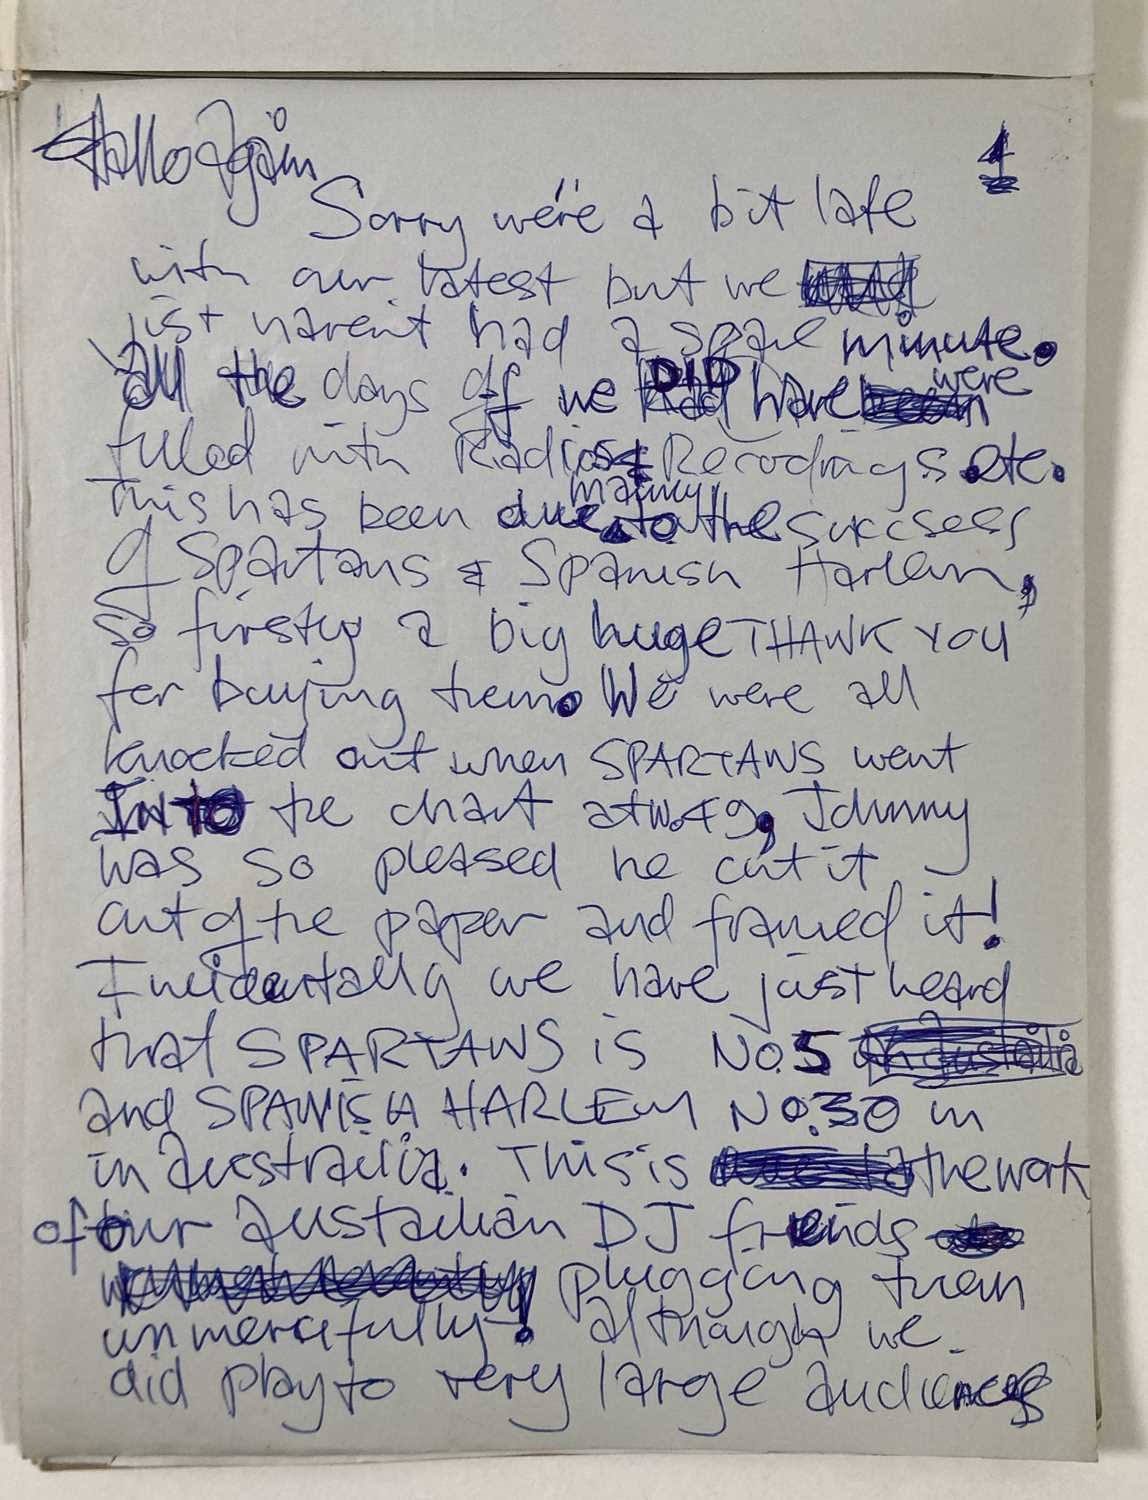 Hallo Again
4
Sorry we're a bit late
with our latest but we
just haven't had a spare minute.
all the days off we DID have were
filled with Radios & Recordings etc.
This has been due mainly to the succsess
of Spartans & Spanish Harlem,
so firstly a big huge THANK YOU
for buying them. We were all
knocked out when SPARTANS went
INTO the chart at No. 49, Johnny
was so pleased he cut it
out of the paper and framed it!
Incidentally we have just heard
that SPARTANS is No. 5
and SPANISH HARLEM No. 30 in
in australia. This is the work
of our austailian DJ friends
plugging them
unmercifully! although we
did play to very large audiences